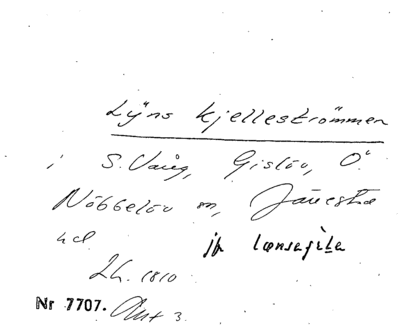 Lÿns kjelleströmmen
i S. Vång, Gislöv, Ö.
Nöbbelöv m, Järrestad
hd jfr lænsagḭla
Lh. 1810
Nr 7707. Akt 3.